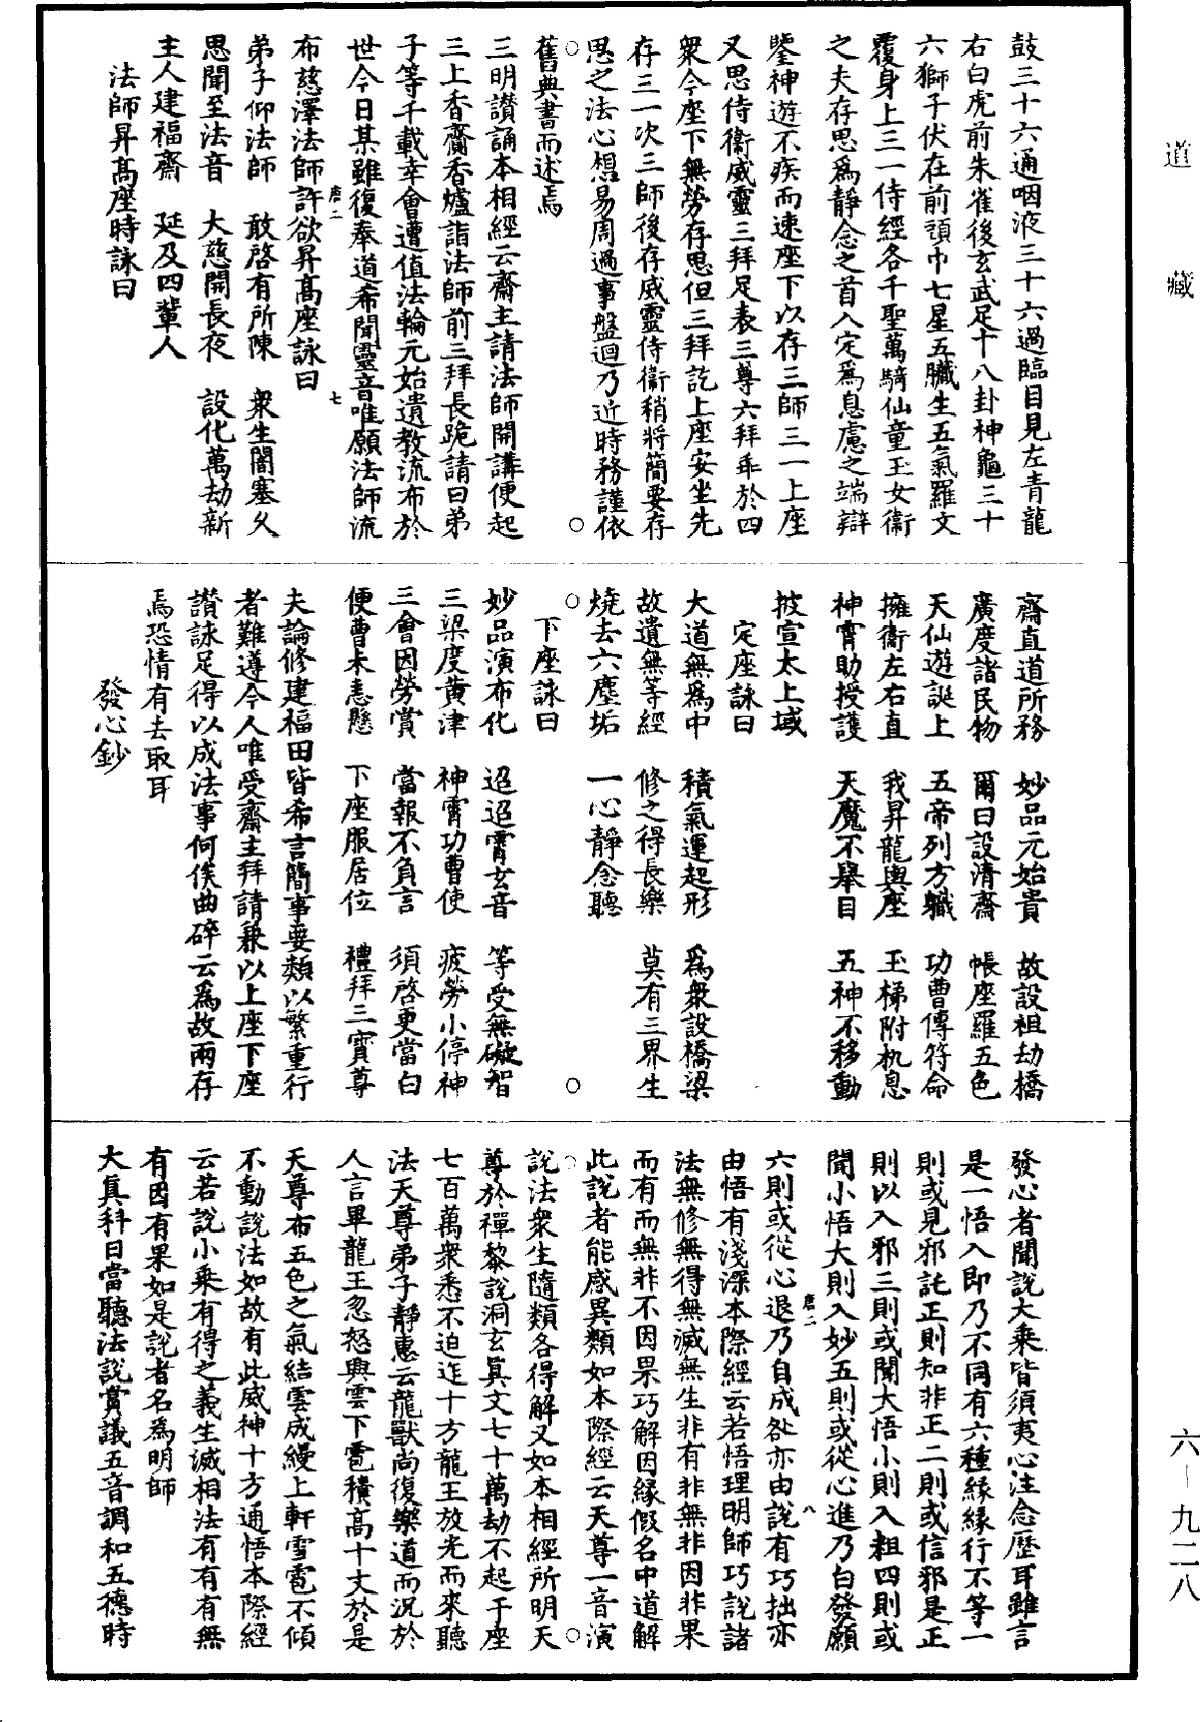 道藏
鼓三十六通咽液三十六過臨目見左青龍
右白虎前朱雀後玄武足十八卦神龜三十
六獅子伏在前頭巾七星五臟生五氣羅文
覆身上三一侍經各千聖萬騎仙童玉女衛
之夫存思爲靜念之首入定爲息慮之端辯
鑒神遊不疾而速座下以存三師三一上座
又思侍衛威靈三拜足表三尊六拜乖於四
衆今座下無勞存思但三拜訖上座安坐先
存三一次三師後存威靈侍衛稍將簡要存
思之法心想易周過事盤迴乃近時務謹依
舊典書而述焉
三明讃誦本相經云齋主請法師開講便起
三上香齎香爐詣法師前三拜長跪請曰弟
子等千載幸會遭值法輪元始遺教流布於
世今日某雖復奉道希聞靈音唯願法師流
唐二 七
布慈澤法師許欲昇高座詠曰
弟子仰法師 敢啓有所陳 衆生闇塞久
思聞至法音 大慈開長夜 設化萬劫新
主人建福齋 延及四輩人
法師昇高座時詠曰
齋直道所務 妙品元始貴 故設祖劫橋
廣度諸民物 爾曰設清齋 帳座羅五色
天仙遊誕上 五帝列方職 功曹傳符命
擁衛左右直 我昇龍輿座 玉梯附机息
神霄助授護 天魔不舉目 五神不移動
披宣太上域
定座詠曰
大道無爲中 積氣運起形 爲衆設橋梁
故遺無等經 修之得長樂 莫有三界生
燒去六塵垢 一心靜念聽
下座詠曰
妙品演布化 迢迢霄玄音 等受無礙智
三梁度黄津 神霄功曹使 疲勞小停神
三會因勞賞 當報不負言 須啓更當白
便曹未恚懸 下座服居位 禮拜三寶尊
夫論修建福田皆希言簡事要類以繁重行
者難遵今人唯受齋主拜請兼以上座下座
讃詠足得以成法事何俟曲碎云爲故兩存
焉恐情有去取耳
發心鈔
發心者聞說大乘皆須夷心注念歷耳雖言
是一悟入即乃不同有六種緣緣行不等一
則或見邪託正則知非正二則或信邪是正
則以入邪三則或聞大悟小則入粗四則或
聞小悟大則入妙五則或從心進乃白發願
唐二 八
六則或從心退乃自成谷亦由說有巧拙亦
由悟有淺深本際經云若悟理明師巧說諸
法無修無得無減無生非有非無非因非果
而有而無非不因果巧解因緣假名中道解
此說者能感異類如本際經云天尊一音演
說法衆生隨類各得解又如本相經所明天
尊於禪黎說洞玄眞文七十萬劫不起于座
七百萬衆悉不迫迮十方龍王放光而來聽
法天尊弟子靜惠云龍獸尚復樂道而況於
人言畢龍王忽怒興雲下雹積高十丈於是
天尊布五色之氣結雲成縵上軒雪雹不傾
不動說法如故有此威神十方通悟本際經
云若說小乘有得之義生滅相法有有有無
有因有果如是說者名爲明師
大眞科曰當聽法說賞議五音調和五德時
六－九二八